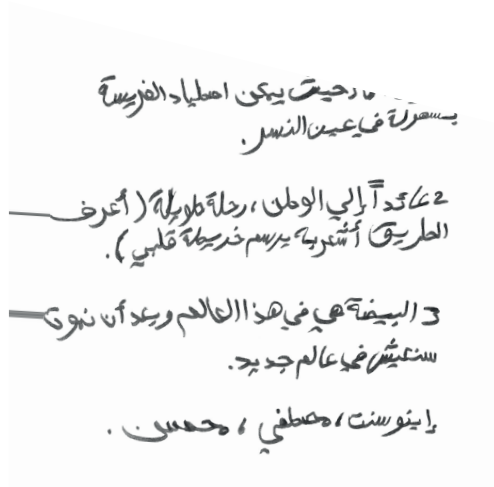 حيث يمكن اصطياد الفريسة
بسهولة في عين النسر.
2 عائداً إلي الوطن، رحلة طويلة (أعرف
الطريق أشعر به يرسم خريطة قلبي).
3 البيضة هي في هذا العالم وبعد أن نموت
سنعيش في عالم جديد.
إينوسنت، مصطفي، محسن.